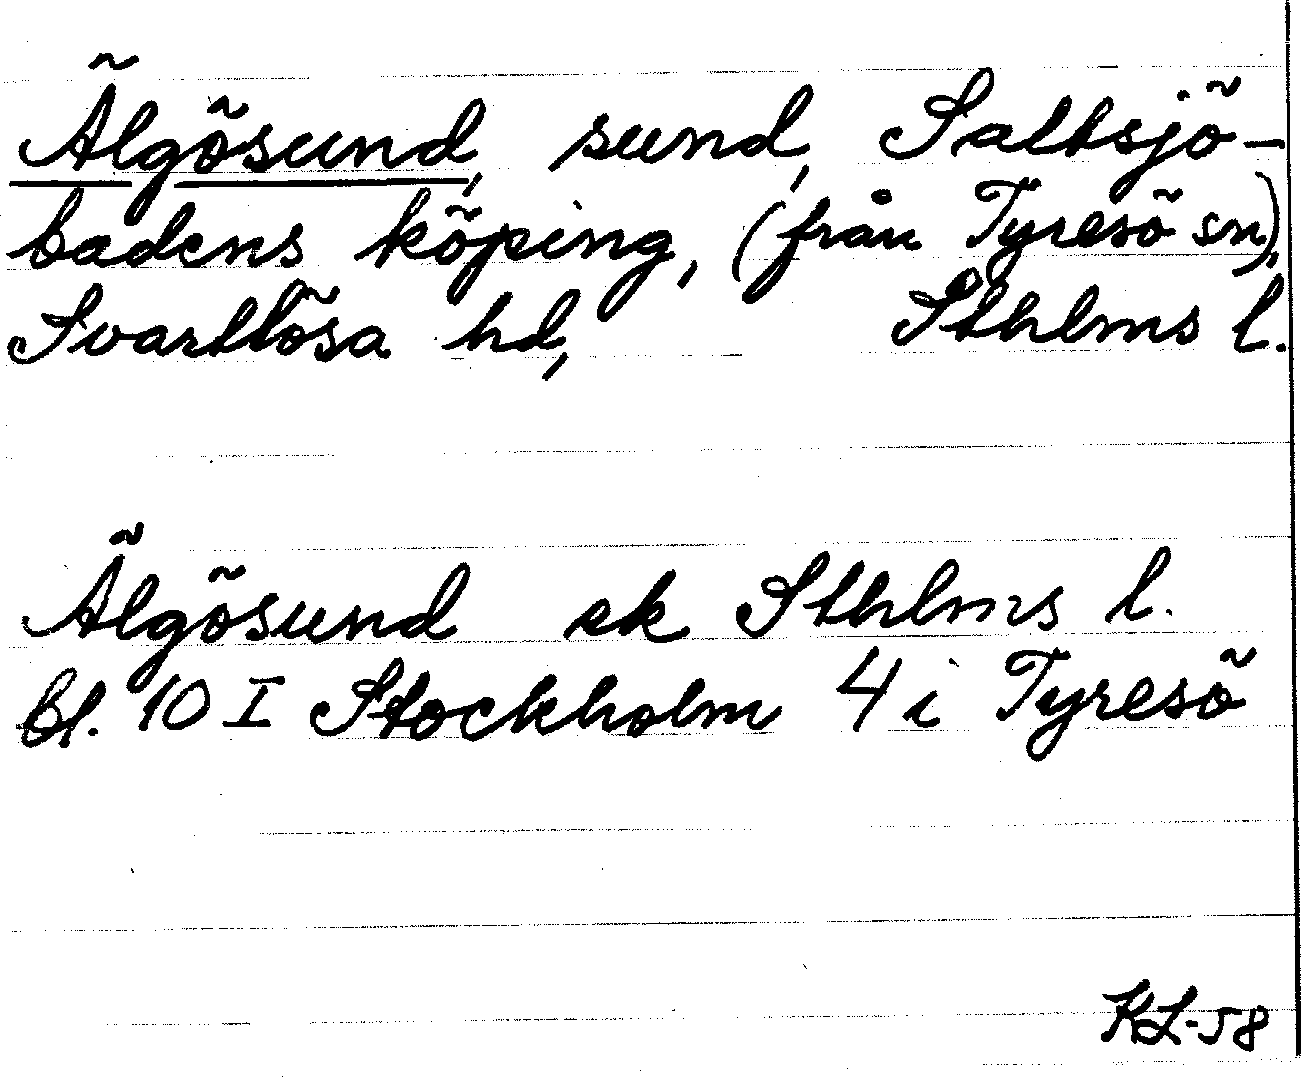 Älgösund, sund, Saltsjö-
badens köping, (från Tyresö sn),
Svartlösa hd, Sthlms l.
Älgösund ek Sthlms l.
bl. 10 I Stockholm 4 i Tyresö
KL-58